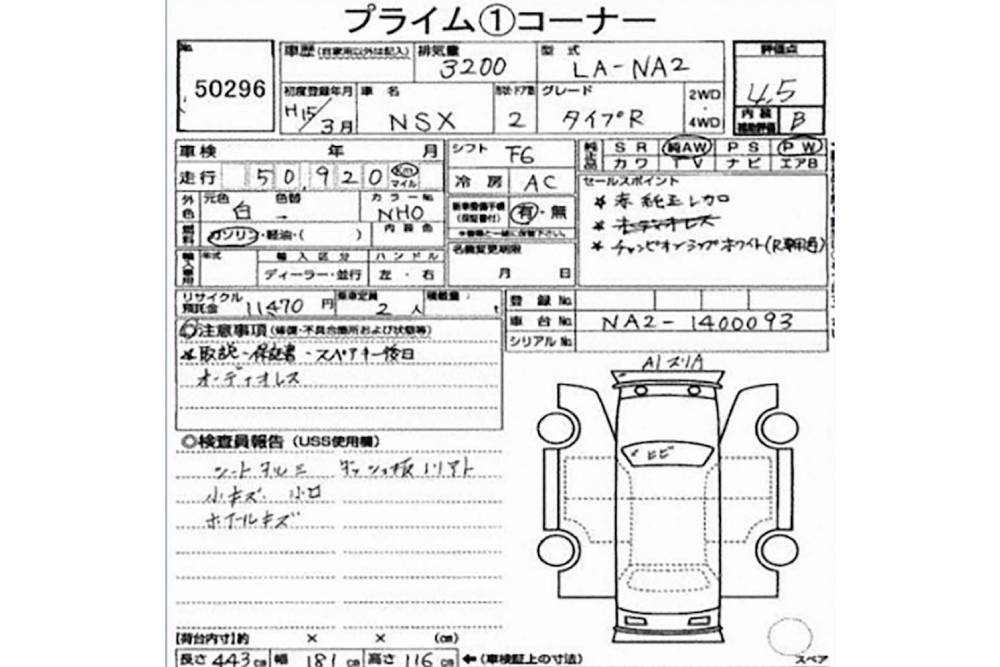 プライム①コーナー
No. 50296
車歴 (自家用以外は記入) 排気量 3200 型式 LA-NA2 評価点 4.5
初度登録年月 H15/3月 車名 NSX 形状・ドア数 2 グレード タイプR 2WD・4WD 内装補助評価 B
車検 年 月 シフト F6 純正品 SR 純AW PS PW
カワ TV ナビ エアB
走行 50,920 km マイル 冷房 AC セールスポイント
外色 元色 白 色替 → カラーNo. NH0 内装色 新車整備手帳(保証書付) 有・無 ※書類と一緒に保管下さい。
* 赤純正レカロ
* オーディオレス
* チャンピオンシップホワイト(R専用色)
燃料 ガソリン・軽油・( ) 名義変更期限 月 日
輸入車用 年式 輸入区分 ディーラー・並行 ハンドル 左・右
リサイクル預託金 11470円 乗車定員 2人 積載量 t 登録No.
車台No. NA2-1400093
シリアルNo.
◎注意事項 (修復・不具合箇所および状態等)
*取説・保証書・スペアキー後日
オーディオレス
A1 ズリA
ヒビ
◎検査員報告 (USS使用欄)
シートヨレミ
小キズ 小凹
ホイールキズ
【荷台内寸】約 × × (cm)
長さ 443cm 幅 181cm 高さ 116cm ←(車検証上の寸法)
スペア